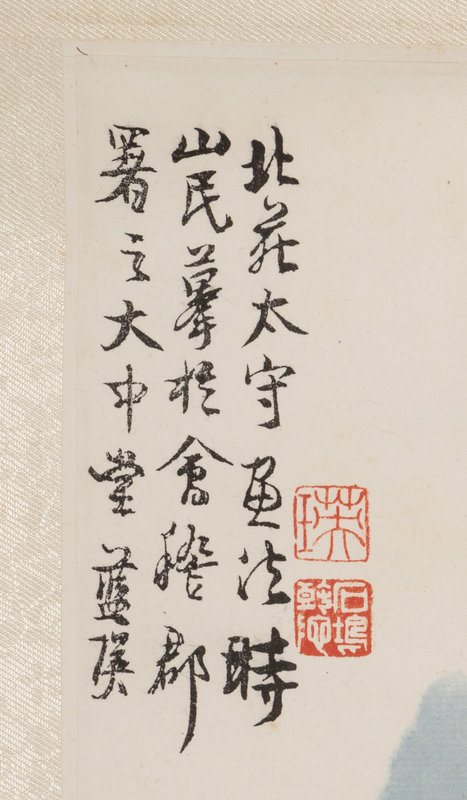 北苑太守画法時
山民摹於會稽郡
署之大中堂 藍瑛
瑛